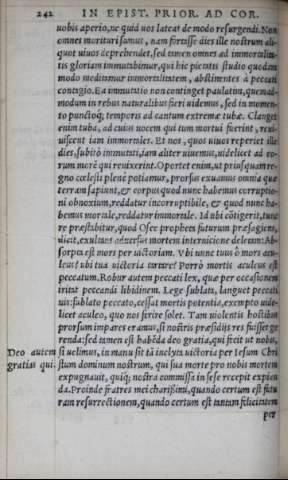 242 IN EPIST. PRIOR. AD COR.
uobis aperio, ne quid uos lateat de modo resurgendi. Non
omnes morituri sumus, nam fortasse dies ille nostrum ali-
quot uiuos deprehendet, sed tamen omnes ad immortalita-
tis gloriam immutabimur, qui hic pietatis studio quodam
modo meditamur immortalitatem, abstinentes à peccati
contagio. Ea immutatio non continget paulatim, quemad-
modum in rebus naturalibus fieri uidemus, sed in momen-
to punctoq; temporis ad cantum extremæ tubæ. Clanget
enim tuba, ad cuius uocem qui tum mortui fuerint, reui-
uiscent iam immortales. Et nos, quos uiuos reperiet ille
dies, subitò immutati, iam aliter uiuemus, uidelicet ad eo-
rum morē qui reuixerint. Oportet enim, ut priusquam re-
gno cœlesti plenè potiamur, prorsus exuamus omnia quæ
terram sapiunt, & corpus quod nunc habemus corruptio-
ni obnoxium, reddatur incorruptibile, & quod nunc ha-
bemus mortale, reddatur immortale. Id ubi cōtigerit, tunc
re præstabitur, quod Osee propheta futurum præsagiens,
dicit, exultans aduersus mortem internicione deletam: Ab-
sorpta est mors per uictoriam. Vbi nunc tuus ô mors acu-
leus? ubi tua uictoria inferne? Porrò mortis aculeus est
peccatum. Robur autem peccati lex, quæ per occasionem
irritat peccandi libidinem. Lege sublata, languet peccati
uis: sublato peccato, cessat mortis potentia, exempto uide-
licet aculeo, quo nos ferire solet. Tam uiolentis hostibus
prorsum impares eramus, si nostris præsidijs res fuisset ge
renda: sed tamen est habēda deo gratia, qui fecit ut nobis,
Deo autem si uelimus, in manu sit tā inclyta uictoria per Iesum Chri
gratias qui. stum dominum nostrum, qui sua morte pro nobis mortem
expugnauit, quiq; nostra commissa in sese recepit expian
da. Proinde fratres mei charissimi, quando certum est futu
ram resurrectionem, quando certum est tantam felicitatem
per